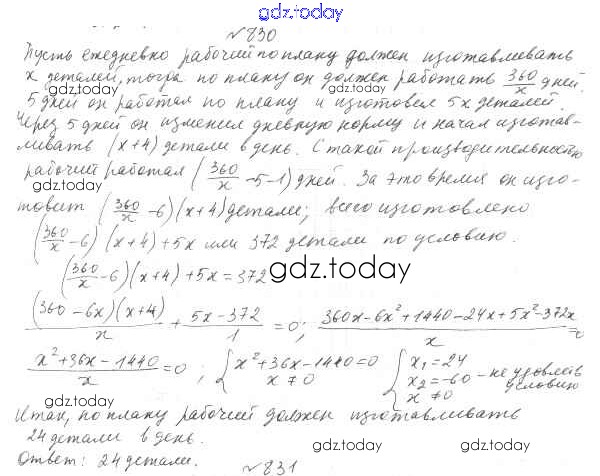 gdz.today
№830
Пусть ежедневно рабочий по плану должен изготавливать
x деталей, тогда по плану он должен работать 360/x дней.
gdz.today gdz.today
5 дней он работал по плану и изготовил 5x деталей.
Через 5 дней он изменил дневную норму и начал изготав-
ливать (x+4) детали в день. С такой производительностью
рабочий работал (360/x -5-1) дней. За это время он изго-
gdz.today gdz.today
товит (360/x -6)(x+4) детали; всего изготовлено
(360/x -6)(x+4)+5x или 372 детали по условию.
gdz.today
(360/x -6)(x+4)+5x=372
gdz.today
(360-6x)(x+4)/x + 5x-372/1 =0; 360x-6x²+1440-24x+5x²-372x/x =0
x²+36x-1440/x =0; { x²+36x-1440=0 x≠0 { x₁=24 x₂=-60 - не удовлетв условию x≠0
Итак, по плану рабочий должен изготавливать
24 детали в день.
gdz.today gdz.today
Ответ: 24 детали.
№831